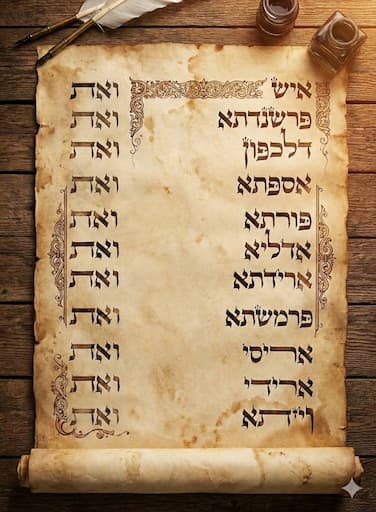 איש ואת
פרשנדתא ואת
דלכפון ואת
אספתא ואת
פורתא ואת
אדליא ואת
ארידתא ואת
פרמשתא ואת
אריסי ואת
ארידי ואת
ויזתא ואת